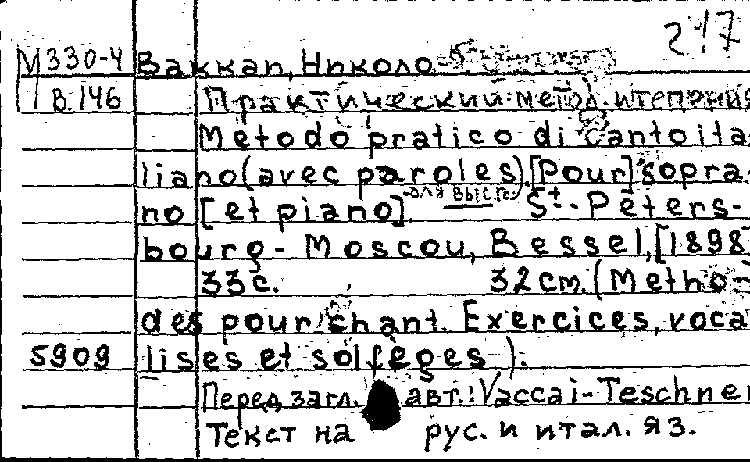 217
М330-4 Ваккаи, Николо
В146 Практический метод итал. пения
Metodo pratico di canto ita-
liano (avec paroles). [Pour] sopra-
no [et piano]. для высок. St.-Péters-
bourg - Moscou, Bessel, [1898]
33 с. 32 cm. (Metho-
des pour chant. Exercices, voca
5909 lises et solfèges).
Перед загл. авт.: Vaccai-Teschner
Текст на рус. и итал. яз.